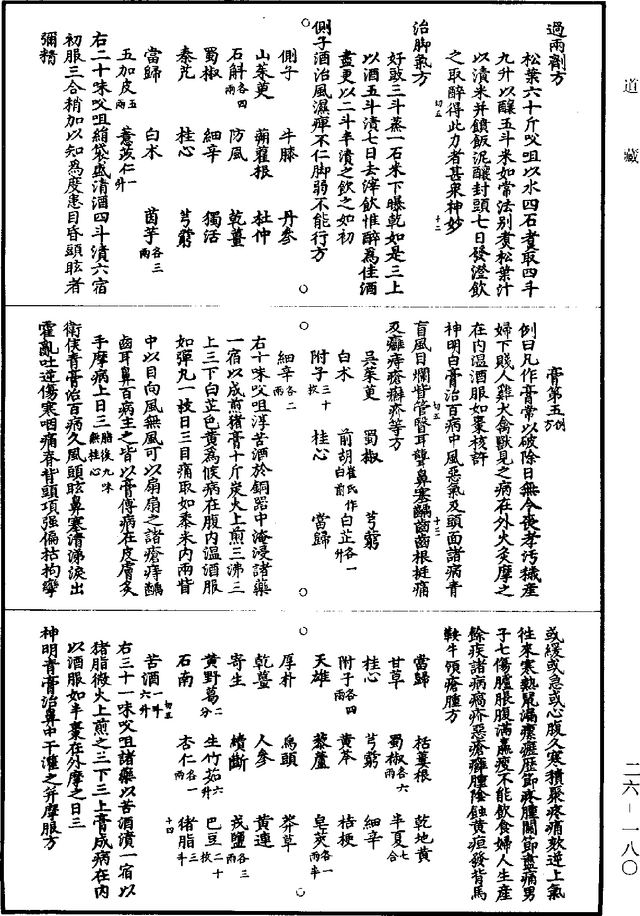 道藏
過兩劑方
松葉六十斤㕮咀以水四石煮取四斗
九升以釀五斗米如常法別煮松葉汁
以漬米并饙飯泥釀封頭七日發澄飲
之取醉得此力者甚衆神妙
治脚氣方
好豉三斗蒸一石米下曝乾如是三上
以酒五斗漬七日去滓飲惟醉爲佳酒
盡更以二斗半漬之飲之如初
側子酒治風濕痺不仁脚弱不能行方
側子 牛膝 丹參
山茱萸 蒴藋根 杜仲
石斛各四兩 防風 乾薑
蜀椒 細辛 獨活
秦艽 桂心 芎藭
當歸 白朮 茵芋各三兩
五加皮五兩 薏苡仁一升
右二十味㕮咀絹袋盛清酒四斗漬六宿
初服三合稍加以知爲度患目昏頭眩者
彌精
膏第五例 方
例曰凡作膏常以破除日無令喪孝汚穢產
婦下賤人雞犬禽獸見之病在外火灸摩之
在內温酒服如棗核許
神明白膏治百病中風惡氣及頭面諸病青
盲風目爛眥管瞖耳聾鼻塞齲齒齒根挺痛
及癰痔瘡癬疥等方
吳茱萸 蜀椒 芎藭
白朮 前胡崔氏作白前 白芷各一升
附子三十枚 桂心 當歸
細辛各二兩
右十味㕮咀淳苦酒於銅器中淹浸諸藥
一宿以成煎猪膏十斤炭火上煎三沸三
上三下白芷色黃爲候病在腹內温酒服
如彈丸一枚日三目痛取如黍米內兩眥
中以目向風無風可以扇扇之諸瘡痔齲
齒耳鼻百病主之皆以膏傅病在皮膚灸
手摩病上日三肘後九味無桂心
衛侯青膏治百病久風頭眩鼻塞清涕淚出
霍亂吐逆傷寒咽痛脊背頭項强偏枯拘攣
或緩或急或心腹久寒積聚疼痛欬逆上氣
往來寒熱鼠漏瘰癧歷節疼腫關節盡痛男
子七傷臚脹腹滿羸瘦不能飲食婦人生產
餘疾諸病瘑疥惡瘡癰腫陰蝕黃疸發背馬
鞍牛領瘡腫方
當歸 栝蔞根 乾地黃
甘草 蜀椒各六兩 半夏七合
桂心 芎藭 細辛
附子各四兩 黃芩 桔梗
天雄 藜蘆 皂莢各一兩半
厚朴 烏頭 莽草
乾薑 人參 黃連
寄生 續斷 戎鹽各三兩
黃野葛二分 生竹茹六升 巴豆二十枚
石南 杏仁各一兩 猪脂三斗
苦酒一斗六升
右三十一味㕮咀諸藥以苦酒漬一宿以
猪脂微火上煎之三下三上膏成病在內
以酒服如半棗在外摩之日三
神明青膏治鼻中干灌之并摩服方
二六－一八〇